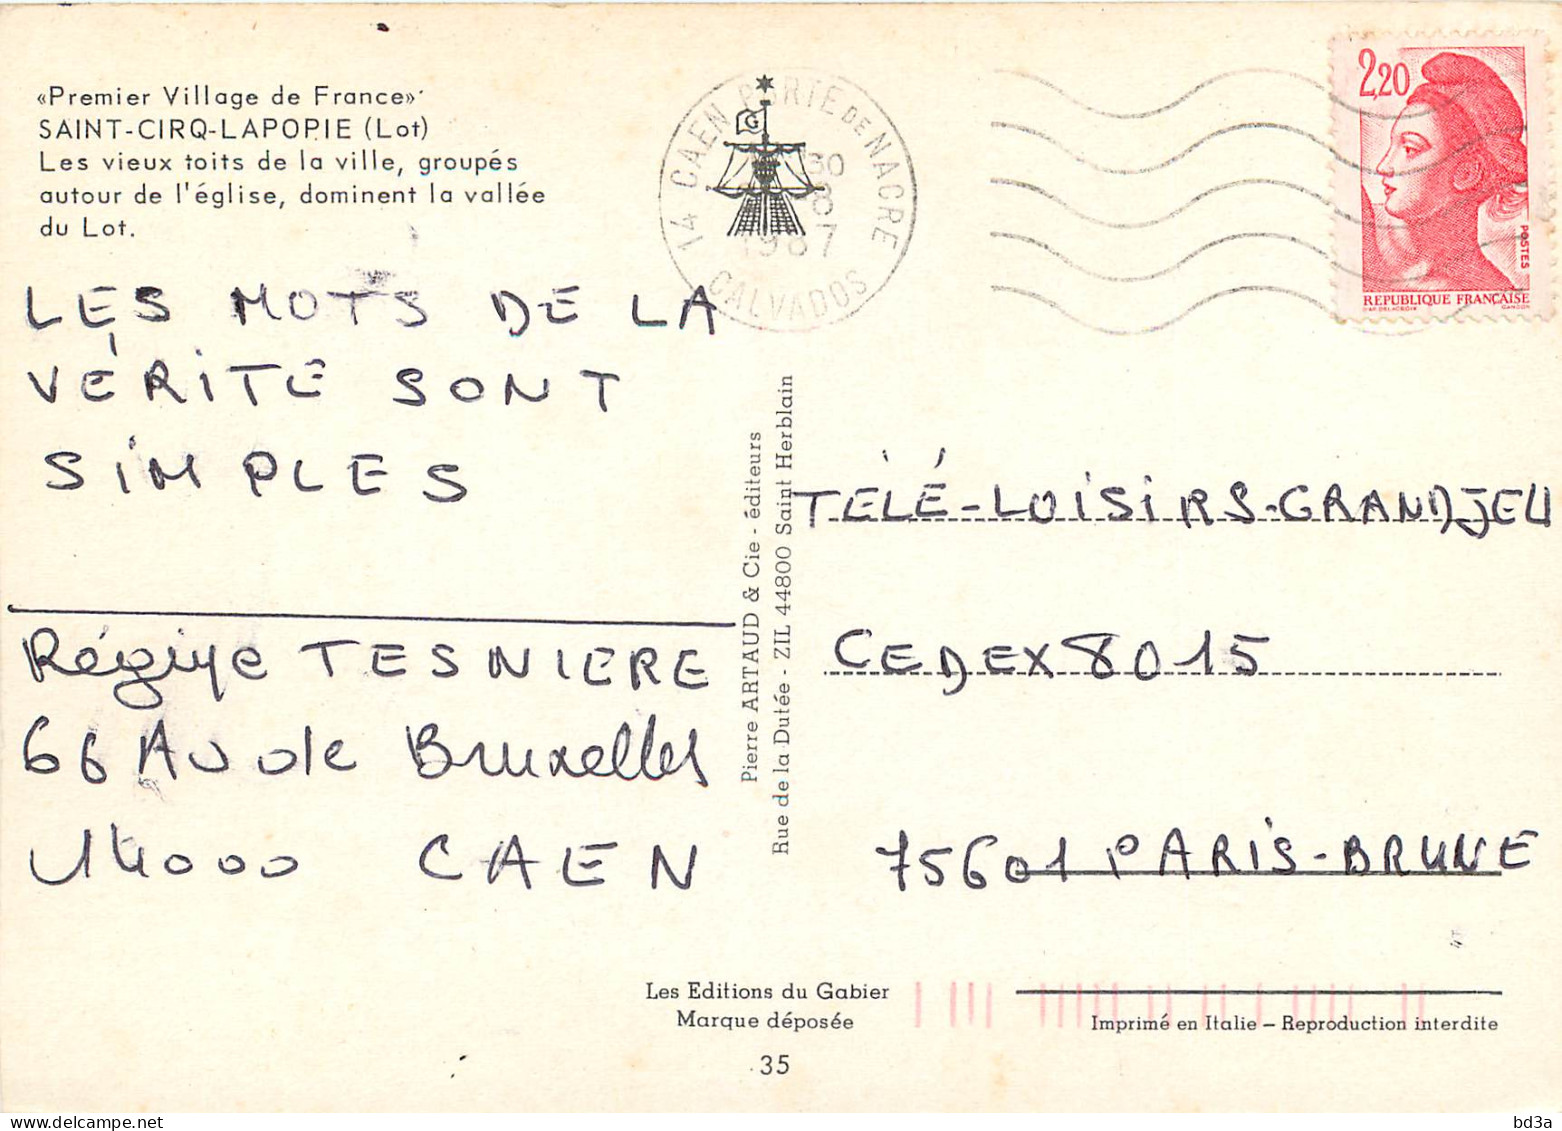 «Premier Village de France»
SAINT-CIRQ-LAPOPIE (Lot)
Les vieux toits de la ville, groupés
autour de l'église, dominent la vallée
du Lot.
14 CAEN PORTE DE NACRE
G
30
8
1987
CALVADOS
2,20
POSTES
REPUBLIQUE FRANÇAISE
D'AP. DELACROIX GANDON
LES MOTS DE LA
VÉRITÉ SONT
SIMPLES
TÉLÉ-LOISIRS-GRANDJEU
CEDEX 8015
75601 PARIS-BRUNE
TESNIERE
66 Av de Bruxelles
14000 CAEN
Pierre ARTAUD & Cie - éditeurs
Rue de la Dutée - ZIL 44800 Saint Herblain
Les Editions du Gabier
Marque déposée
35
Imprimé en Italie – Reproduction interdite
bd3a